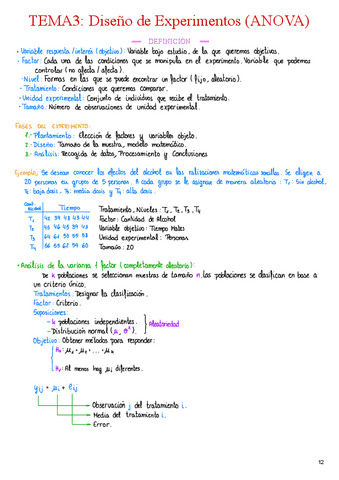 TEMA3: Diseño de Experimentos (ANOVA)
DEFINICIÓN
• Variable respuesta / interés (objetivo): Variable bajo estudio, de la que queremos objetivos.
• Factor: Cada una de las condiciones que se manipula en el experimento. Variable que podemos
controlar (no afecta / afecta).
• Nivel: Formas en las que se puede encontrar un factor (fijo, aleatorio).
• Tratamiento: Condiciones que queremos comparar.
• Unidad experimental: Conjunto de individuos que recibe el tratamiento.
• Tamaño: Número de observaciones de unidad experimental.
FASES DEL EXPERIMENTO:
1.- Planteamiento: Elección de factores y variables objeto.
2.- Diseño: Tamaño de la muestra, modelo matemático.
3.- Análisis: Recogida de datos, Procesamiento y Conclusiones
Ejemplo, Se desean conocer los efectos del alcohol en las
20 personas en grupos de 5 personas. A cada grupo se le asigna de manera aleatoria: T₁: Sin alcohol,
T₂: baja dosis, T₃: media dosis y T₄: alta dosis.
Cant. Alcohol Tiempo
T₁
T₂
T₃
T₄
Tratamiento, Niveles: T₁, T₂, T₃, T₄
Factor: Cantidad de Alcohol
Variable objetivo: Tiempo Mates
Unidad experimental: Personas
Tamaño: 20
• Análisis de la varianza 1 factor (completamente aleatorio):
De k poblaciones se seleccionan muestras de tamaño n. Las poblaciones se clasifican en base a
un criterio único,
Tratamientos: Designar la clasificación.
Factor: Criterio.
Suposiciones:
- k poblaciones independientes.
- Distribución normal (μ, σ²).
Aleatoriedad
Objetivo: Obtener métodos para responder:
H₀: μ₁ = μ₂ = ... = μₖ
H₁: Al menos hay μᵢ diferentes.
yᵢⱼ = μᵢ + eᵢⱼ
Observación j del tratamiento i.
Media del tratamiento i.
Error.
12